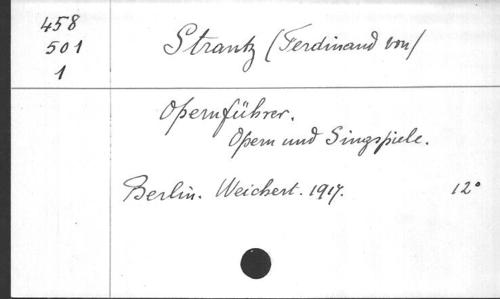 458
501
1
Strantz (Ferdinand von/
Opernführer.
Opern und Singspiele.
Berlin. Weichert. 1917. 12°